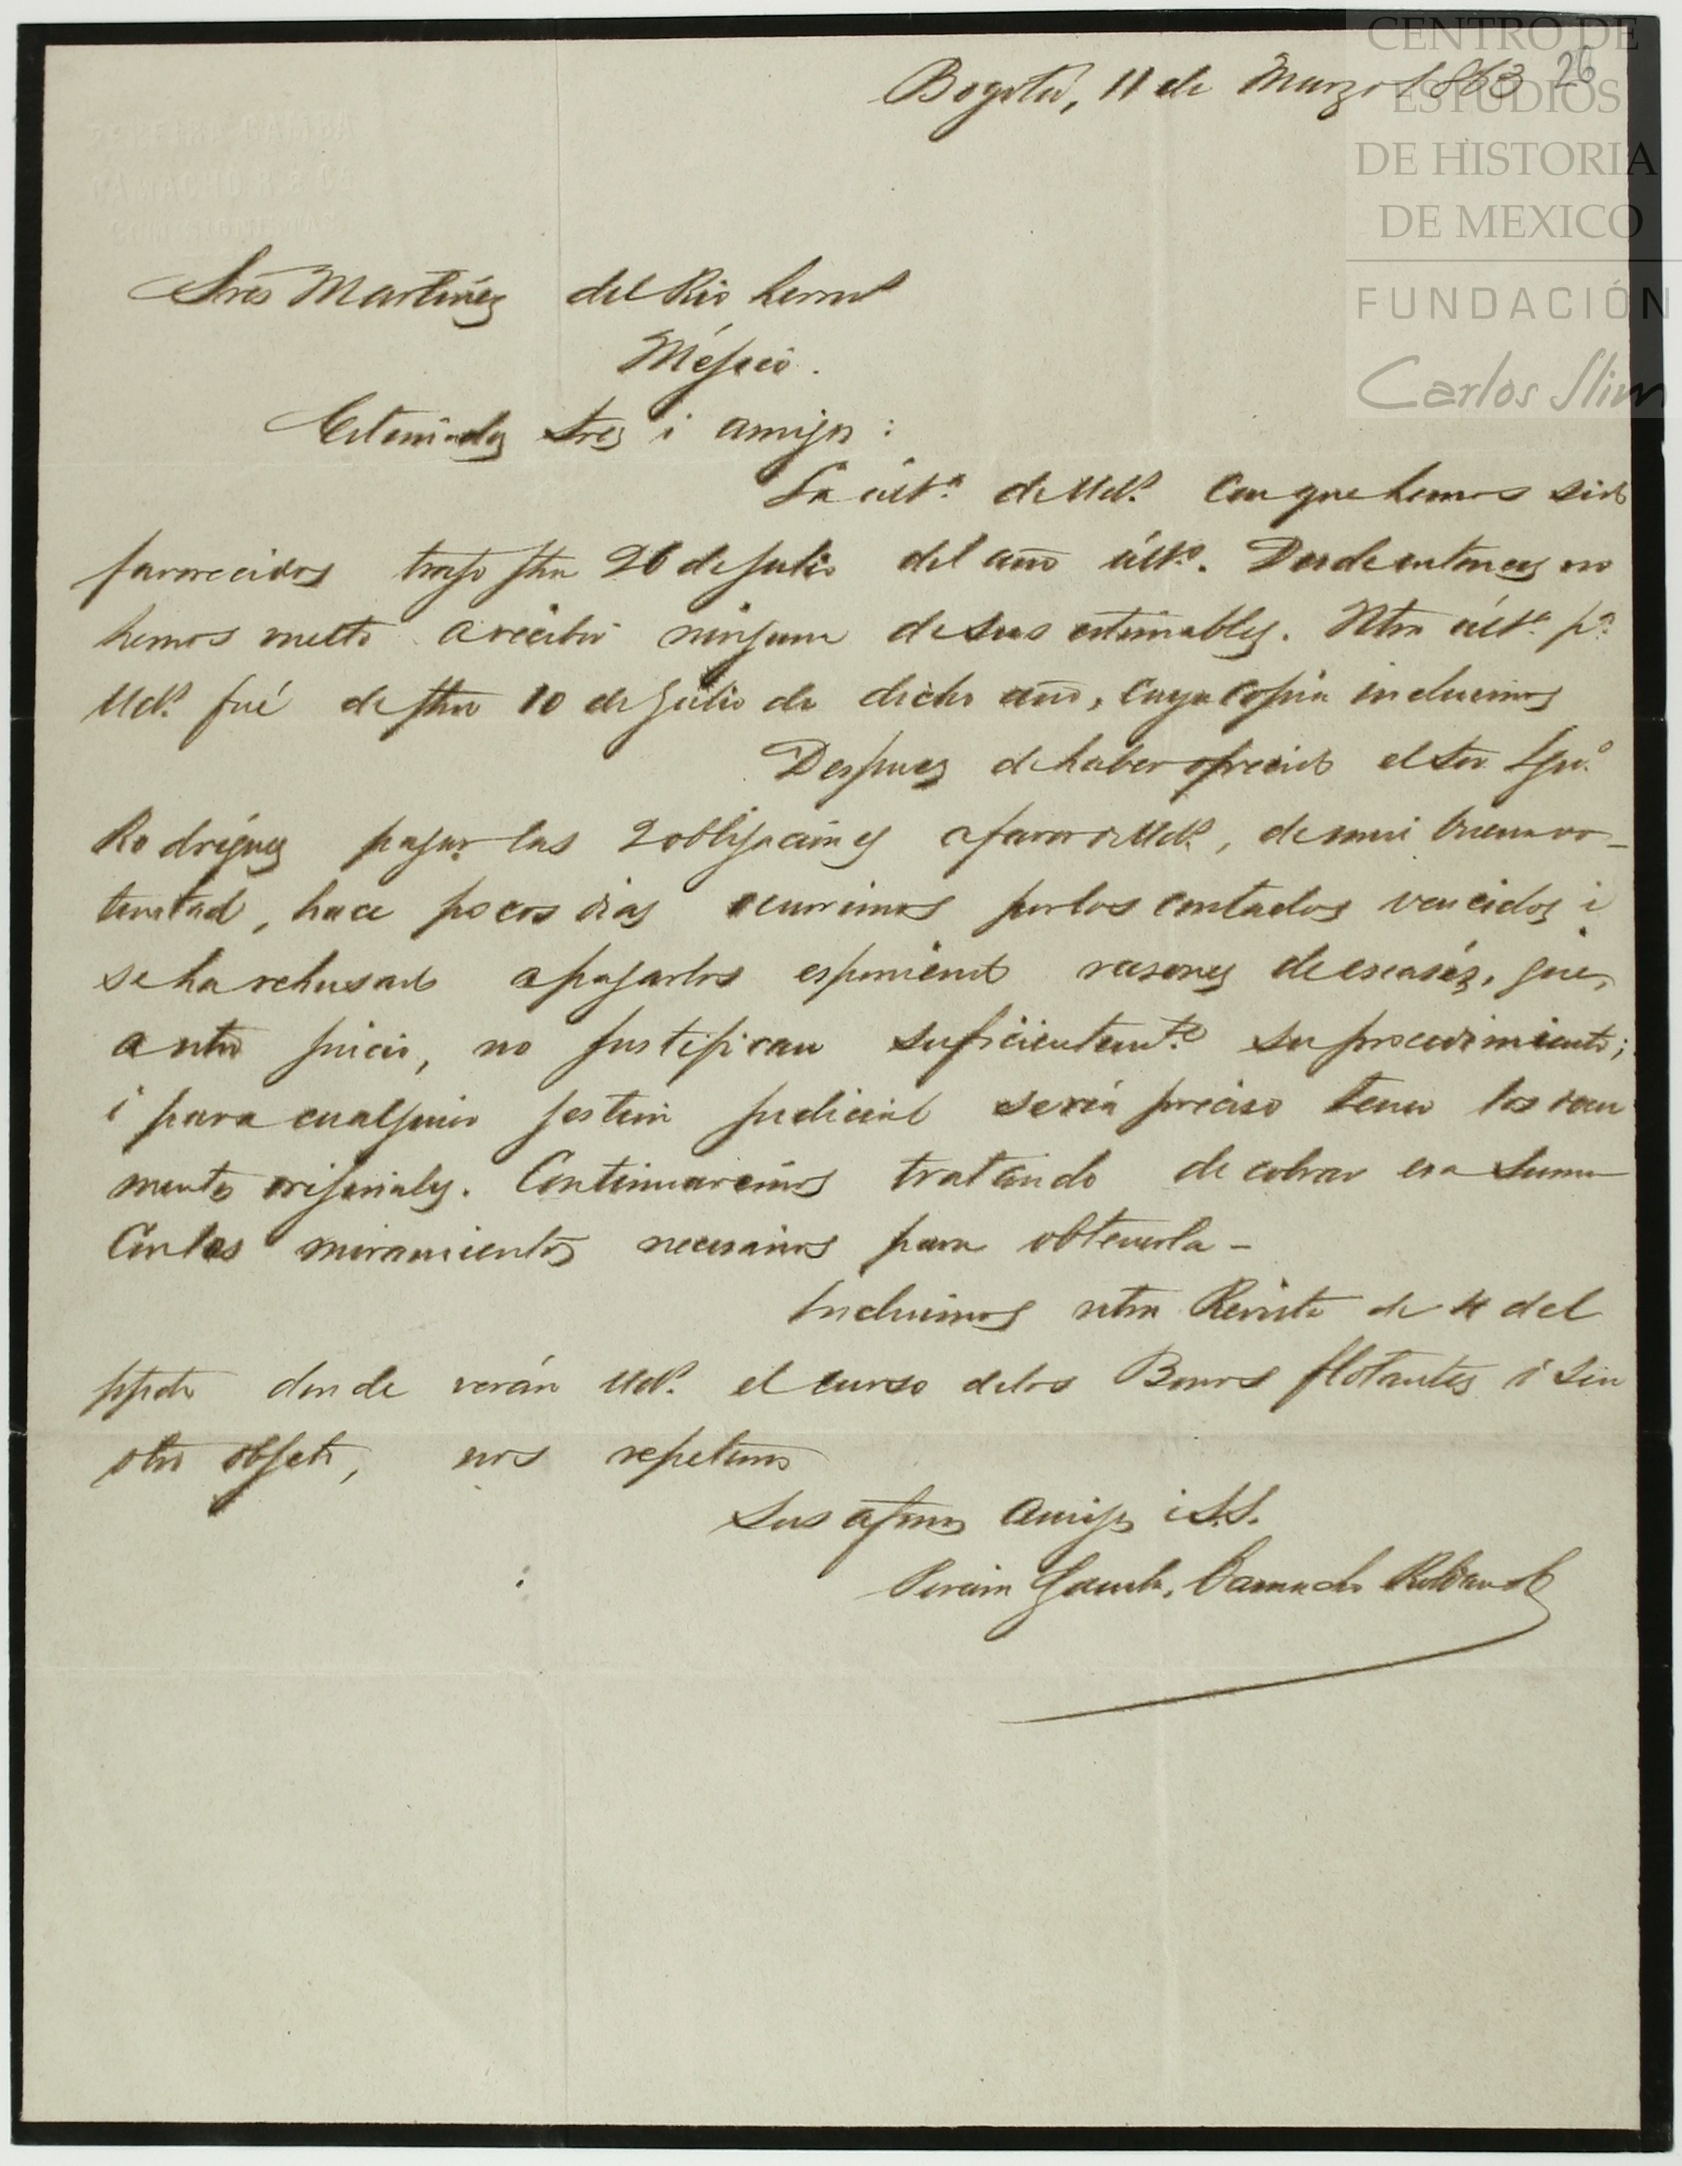 Bogotá, 11 de Marzo 1863
26
CENTRO DE
ESTUDIOS
DE HISTORIA
DE MEXICO
FUNDACIÓN
Carlos Slim
Sres Martínez del Rio herms
Méjico.
Estimados Sres i amigos:
La últa. de Uds. con que hemos sido
favorecidos trajo fha 26 de julio del año últo. Desde entonces no
hemos vuelto a recibir ninguna de sus estimables. Ntra últa. pa.
Uds. fué de fha 10 de julio de dicho año, cuya copia incluimos
Despues de haber ofrecido el Sor Igno.
Rodríguez pagar las 2 obligaciones a favor de Uds., de mui buena vo-
luntad, hace pocos dias ocurrimos por los contados vencidos i
se ha rehusado a pagarlos esponiendo razones de escasés, que,
a ntro juicio, no justifican suficientemte. su procedimiento;
i para cualquier jestion judicial sería preciso tener los docu
mentos orijinales. Continuaremos tratando de cobrar esa suma
con los miramientos necesarios para obtenerla -
Incluimos ntra Revista de 4 del
ppdo donde verán Uds. el curso de los Bonos flotantes i sin
otro objeto, nos repetimos
Sus afmos amigos i S.S.
Pereira Gamba, Camacho Roldan &